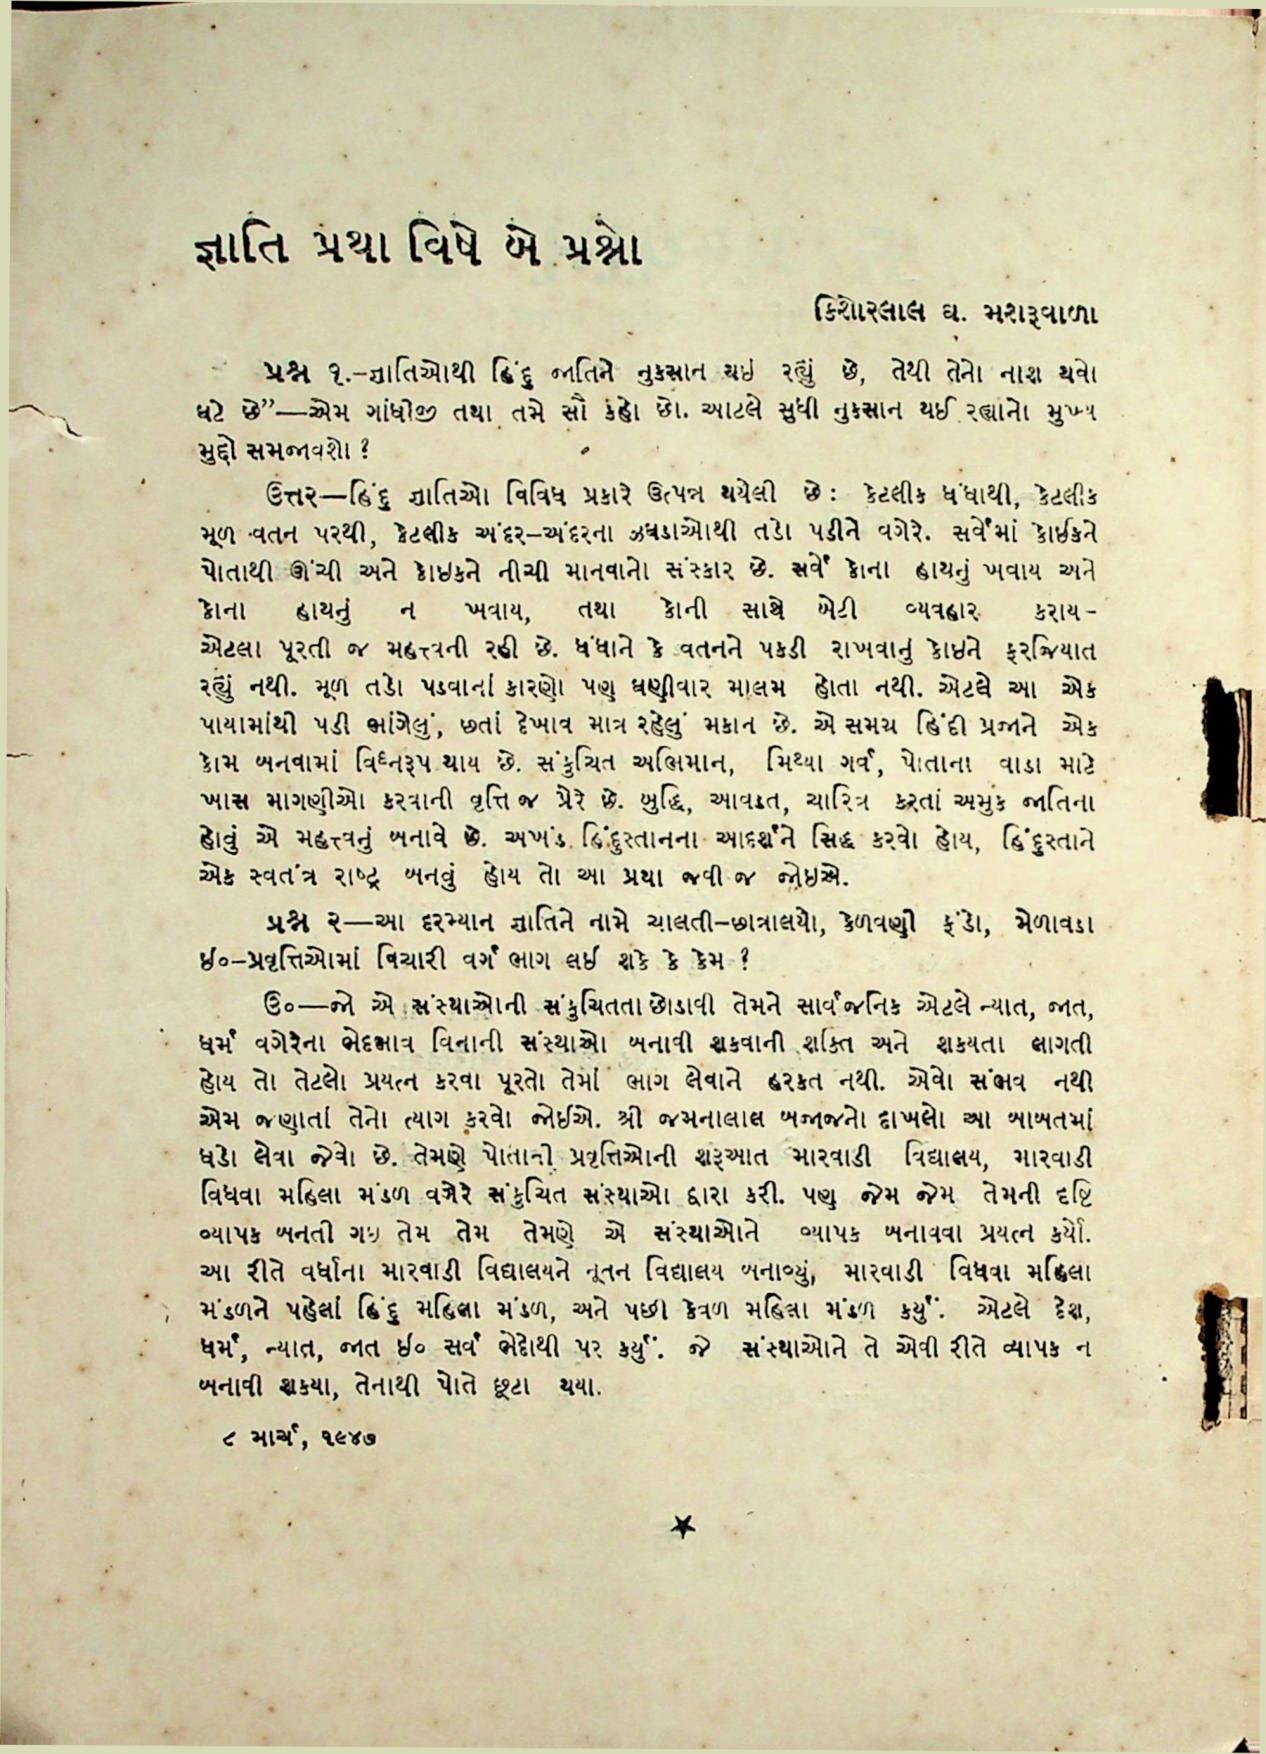 જ્ઞાતિ પ્રથા વિષે બે પ્રશ્નો
કિશોરલાલ ઘ. મશરૂવાળા
પ્રશ્ન ૧.-જ્ઞાતિઓથી હિંદુ જાતિને નુકસાન થઇ રહ્યું છે, તેથી તેનો નાશ થવો
ઘટે છે”—એમ ગાંધીજી તથા તમે સૌ કહો છો. આટલે સુધી નુકસાન થઈ રહ્યાનો મુખ્ય
મુદ્દો સમજાવશો ?
ઉત્તર—હિંદુ જ્ઞાતિઓ વિવિધ પ્રકારે ઉત્પન્ન થયેલી છે : કેટલીક ધંધાથી, કેટલીક
મૂળ વતન પરથી, કેટલીક અંદર-અંદરના ઝઘડાઓથી તડો પડીને વગેરે. સર્વેમાં કોઈકને
પોતાથી ઊંચી અને કોઇકને નીચી માનવાનો સંસ્કાર છે. સર્વે કોના હાથનું ખવાય અને
કોના હાથનું ન ખવાય, તથા કોની સાથે બેટી વ્યવહાર કરાય-
એટલા પૂરતી જ મહત્ત્વની રહી છે. ધંધાને કે વતનને પકડી રાખવાનું કોઇને ફરજિયાત
રહ્યું નથી. મૂળ તડો પડવાનાં કારણો પણ ઘણીવાર માલમ હોતા નથી. એટલે આ એક
પાયામાંથી પડી ભાંગેલું, છતાં દેખાવ માત્ર રહેલું મકાન છે. એ સમગ્ર હિંદી પ્રજાને એક
કોમ બનવામાં વિઘ્નરૂપ થાય છે. સંકુચિત અભિમાન, મિથ્યા ગર્વ, પોતાના વાડા માટે
ખાસ માગણીઓ કરવાની વૃત્તિ જ પ્રેરે છે. બુદ્ધિ, આવડત, ચારિત્ર કરતાં અમુક જાતિના
હોવું એ મહત્ત્વનું બનાવે છે. અખંડ હિંદુસ્તાનના આદર્શને સિદ્ધ કરવો હોય, હિંદુસ્તાને
એક સ્વતંત્ર રાષ્ટ્ર બનવું હોય તો આ પ્રથા જવી જ જોઇએ.
પ્રશ્ન ૨—આ દરમ્યાન જ્ઞાતિને નામે ચાલતી-છાત્રાલયો, કેળવણી ફંડો, મેળાવડા
ઇ૦-પ્રવૃત્તિઓમાં વિચારી વર્ગ ભાગ લઇ શકે કે કેમ ?
ઉ૦—જો એ સંસ્થાઓની સંકુચિતતા છોડાવી તેમને સાર્વજનિક એટલે ન્યાત, જાત,
ધર્મ વગેરેના ભેદભાવ વિનાની સંસ્થાઓ બનાવી શકવાની શક્તિ અને શક્યતા લાગતી
હોય તો તેટલો પ્રયત્ન કરવા પૂરતો તેમાં ભાગ લેવાને હરકત નથી. એવો સંભવ નથી
એમ જણાતાં તેનો ત્યાગ કરવો જોઈએ. શ્રી જમનાલાલ બજાજનો દાખલો આ બાબતમાં
ધડો લેવા જેવો છે. તેમણે પોતાની પ્રવૃત્તિઓની શરૂઆત મારવાડી વિદ્યાલય, મારવાડી
વિધવા મહિલા મંડળ વગેરે સંકુચિત સંસ્થાઓ દ્વારા કરી. પણ જેમ જેમ તેમની દૃષ્ટિ
વ્યાપક બનતી ગઇ તેમ તેમ તેમણે એ સંસ્થાઓને વ્યાપક બનાવવા પ્રયત્ન કર્યો.
આ રીતે વર્ધાના મારવાડી વિદ્યાલયને નૂતન વિદ્યાલય બનાવ્યું, મારવાડી વિધવા મહિલા
મંડળને પહેલાં હિંદુ મહિલા મંડળ, અને પછી કેવળ મહિલા મંડળ કર્યું. એટલે દેશ,
ધર્મ, ન્યાત, જાત ઇ૦ સર્વ ભેદોથી પર કર્યું. જે સંસ્થાઓને તે એવી રીતે વ્યાપક ન
બનાવી શક્યા, તેનાથી પોતે છૂટા થયા.
૮ માર્ચ, ૧૯૪૭